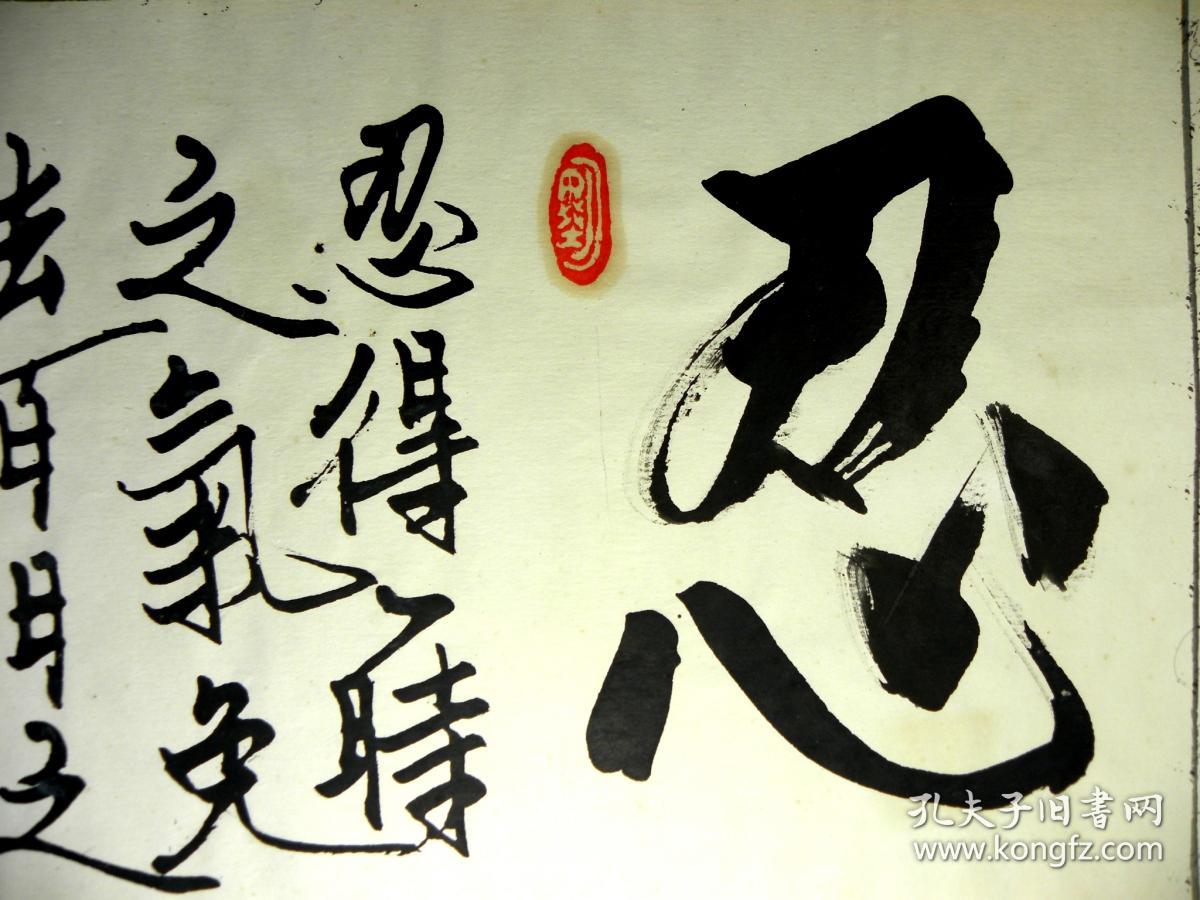 忍
忍得一時
之氣免
去百日之
孔夫子旧書网
www.kongfz.com